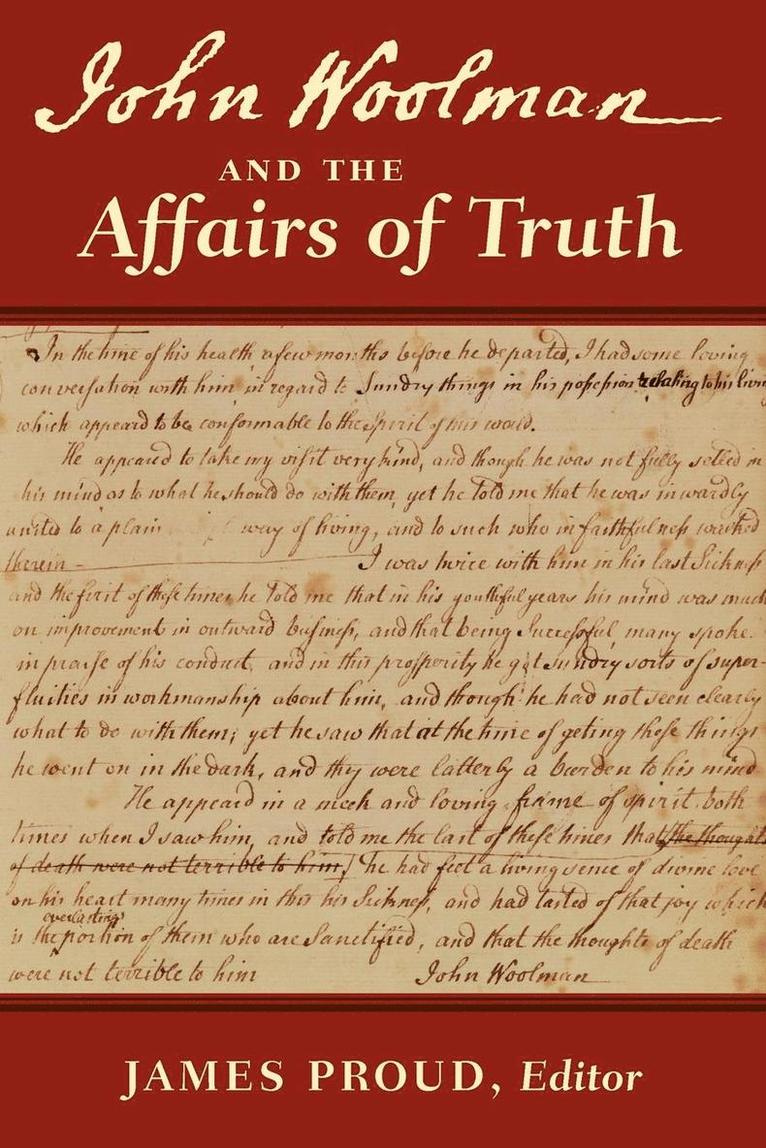 John Woolman
AND THE
Affairs of Truth
In the time of his health a few months before he departed, I had some loving
conversation with him in regard to Sundry things in his possession relating to his living
which appeared to be conformable to the Spirit of this world.
He appeared to take my visit very kind, and though he was not fully setled in
his mind as to what he should do with them, yet he Told me that he was inwardly
united to a plain way of living, and to such who in faithfulness walked
therein I was twice with him in his last Sickness
and the first of these times he Told me that in his youthful years his mind was much
on improvement in outward business, and that being Successful, many spoke
in praise of his conduct, and in this prosperity he got sundry sorts of super-
fluities in workmanship about him, and though he had not seen clearly
what to do with them; yet he saw that at the time of geting those things
he went on in the dark, and they were latterly a burden to his mind
He appeard in a meek and loving frame of spirit both
times when I saw him, and told me the last of these times that the thoughts
of death were not terrible to him, he had feet a living sence of divine love
on his heart many times in this his Sickness, and had tasted of that joy which
everlasting
is the portion of them who are Sanctified, and that the thoughts of death
were not terrible to him John Woolman
JAMES PROUD, Editor